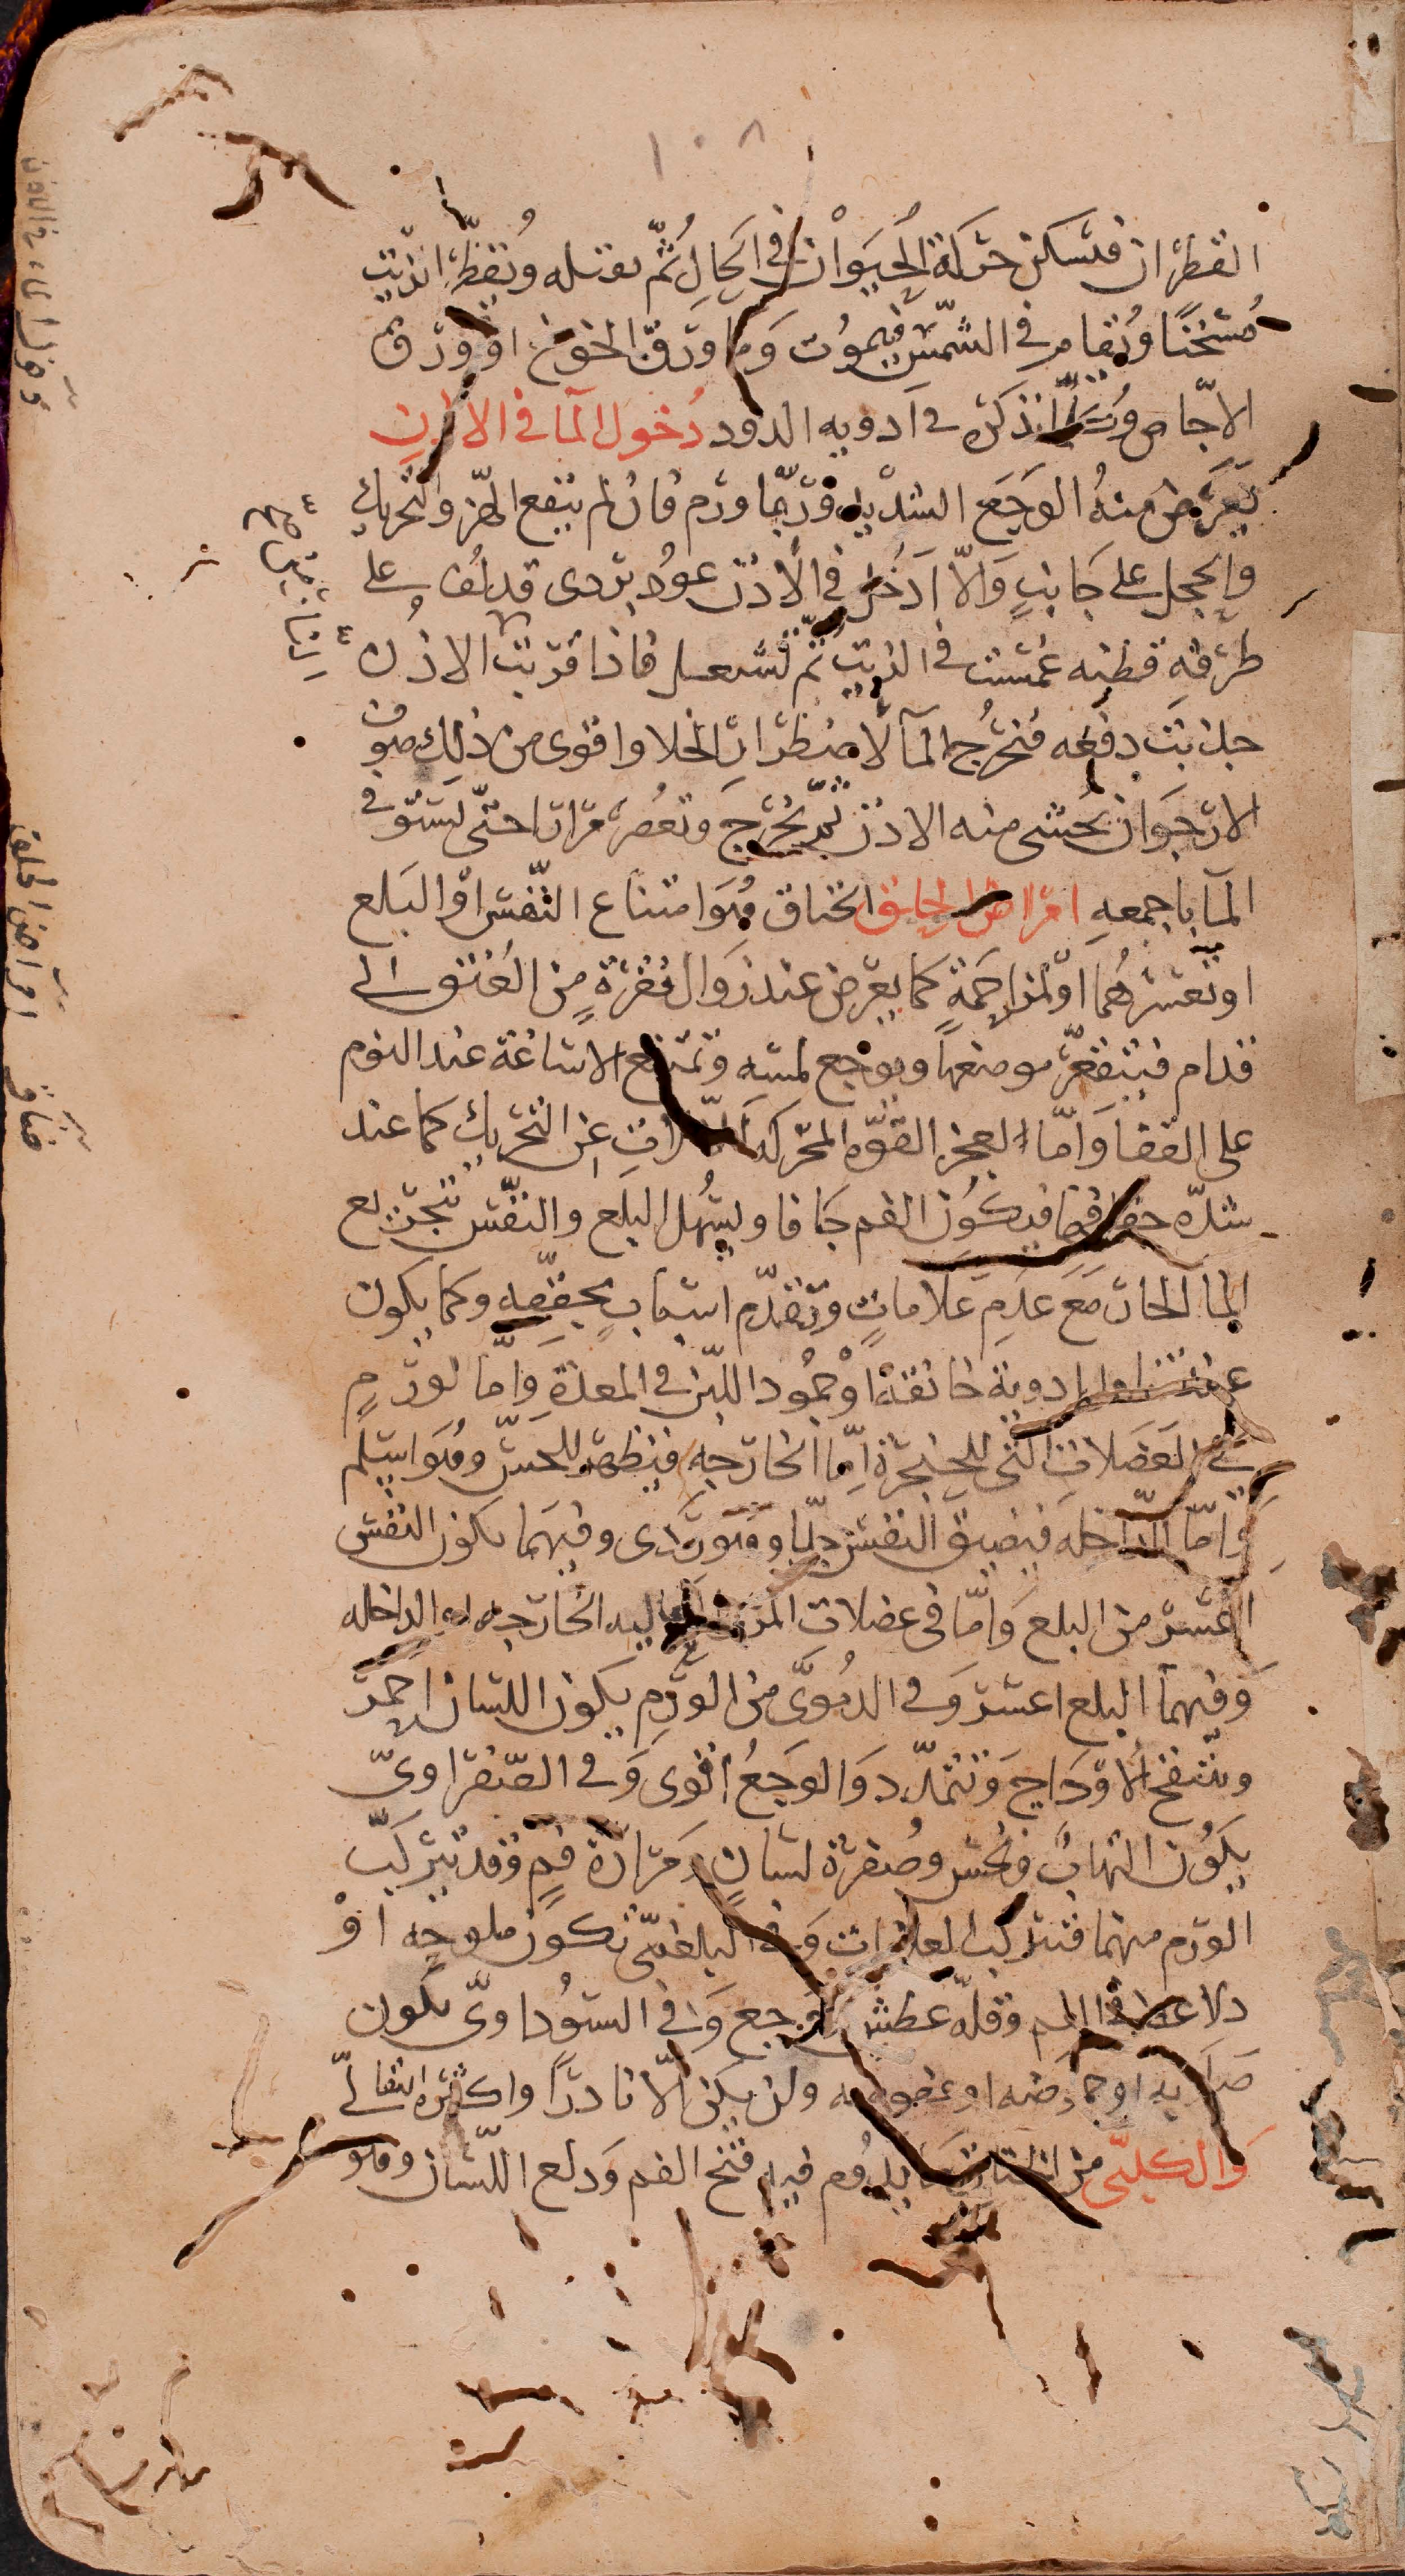 ١٠٨
القطران فتسكن حركة الحيوان في الحال ثم يقتله وتقطر الزيت
مسخنا ويقام في الشمس فيموت وما ورق الخوخ او ورق
الاجاص وسائر ما نذكره في ادويه الدود دخول الما في الاذن
يعرض منه الوجع الشديد وربما ورم فان لم ينفع الهز والتحريك
والحجل على جانب والا ادخل في الاذن عود بردى قد لف على
طرفه قطنه غمست في الزيت ثم تشعل فاذا قربت الاذن
جذبت دفعه فتخرج الما لاضطرار الخلا واقوى من ذلك صوف
الارجوان يحشى منه الاذن ثم يخرج وتعصر مرارا حتى يستوفى
الما باجمعه امراض الحلق الخناق هو امتناع النفس او البلع
او تعسرهما او لمزاحمة كما يعرض عند زوال فقرة من العنق الى
قدام فيتقعر موضعها ويوجع لمسه وتمتنع الاساغة عند النوم
على القفا واما لعجز القوه المحركه العضلات عن التحريك كما عند
شده جفافها فيكون الفم جافا ويسهل البلع والنفس بتجرع
الما الحار مع عدم علامات وتقدم اسباب مجففه وكما يكون
عند تناول ادوية خانقة او جمود اللبن في المعدة واما لورم
في العضلات التي للحنجرة اما الخارجه فيظهر للحس وهو اسلم
واما الداخله فيضيق النفس جدا وهو ردى وفيهما يكون النفس
اعسر من البلع واما في عضلات المرى الخارجه او الداخله
وفيهما البلع اعسر وفي الدموي من الورم يكون اللسان احمر
وتنتفخ الاوداج وتتمدد والوجع اقوى وفي الصفراوي
يكون التهاب ونخس وصفرة لسان ومرارة فم وقد يتركب
الورم منهما فتتركب العلامات وفي البلغمي تكون ملوحه او
دلاعه في الفم وقلة عطش ووجع وفي السوداوي يكون
صلابه او حموضه او عفوصه ولن يكن الا نادرا واكثره انتقالي
والكلبي من الخناق ما يدوم فيه فتح الفم ودلع اللسان وهو
دخول الما في الاذن
امراض الحلق
خناق